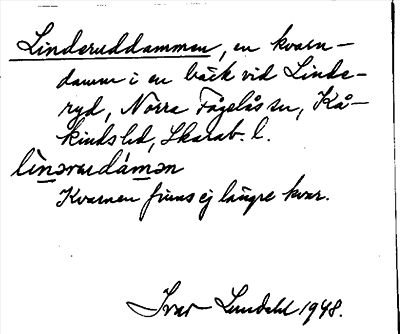 Linderuddammen, en kvarn-
damm i en bäck vid Linde-
ryd, Norra Fågelås sn, Kå-
kinds hd, Skarab. l.
Kvarnen finns ej längre kvar.
Ivar Lundahl 1948.